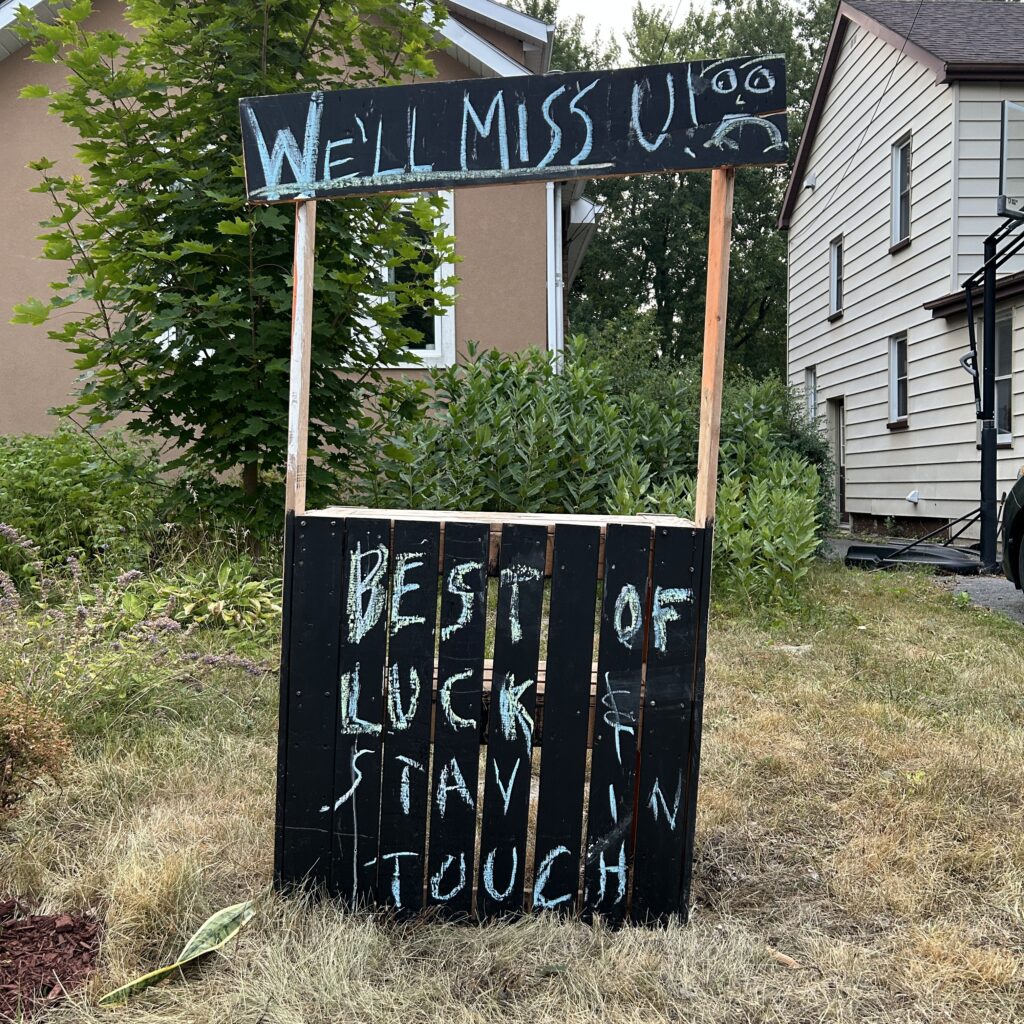 WE'LL MISS U!
BEST OF
LUCK &
STAY IN
TOUCH